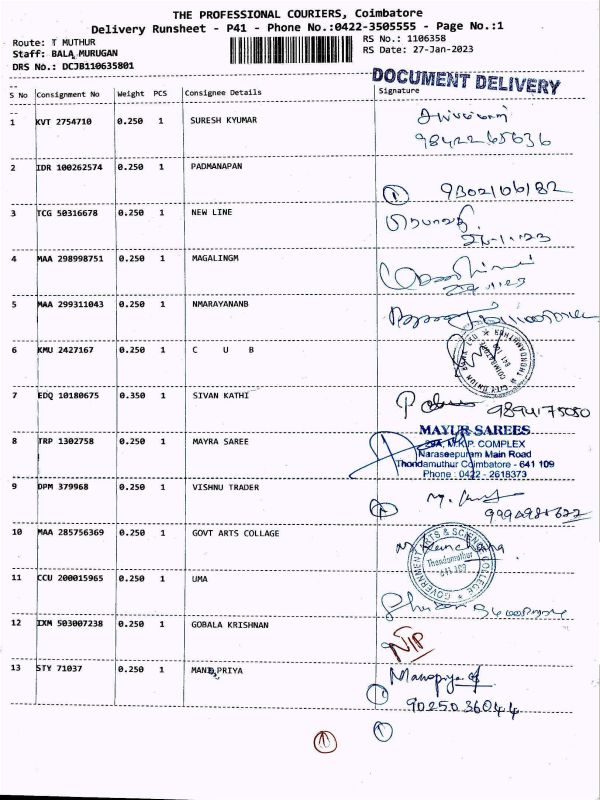 THE PROFESSIONAL COURIERS, Coimbatore
Delivery Runsheet - P41 - Phone No.:0422-3505555 - Page No.:1
Route: T MUTHUR
RS No.: 1106358
Staff: BALA MURUGAN
RS Date: 27-Jan-2023
DRS No.: DCJB110635801
DOCUMENT DELIVERY
S No Consignment No Weight PCS Consignee Details Signature
1 KVT 2754710 0.250 1 SURESH KYUMAR
9842265636
2 IDR 100262574 0.250 1 PADMANAPAN
9302106182
3 TCG 50316678 0.250 1 NEW LINE
4 MAA 298998751 0.250 1 MAGALINGM
5 MAA 299311043 0.250 1 NMARAYANANB
6 KMU 2427167 0.250 1 C U B
7 EDQ 10180675 0.350 1 SIVAN KATHI
9894175080
8 TRP 1302758 0.250 1 MAYRA SAREE
MAYUR SAREES
29A, M.K.P. COMPLEX
Naraseepuram Main Road
Thondamuthur Coimbatore - 641 109
Phone : 0422 - 2618373
9 DPM 379968 0.250 1 VISHNU TRADER
10 MAA 285756369 0.250 1 GOVT ARTS COLLAGE
GOVERNMENT ARTS & SCIENCE COLLEGE
Thondamuthur
641 109
11 CCU 200015965 0.250 1 UMA
12 IXM 503007238 0.250 1 GOBALA KRISHNAN
NIP
13 STY 71037 0.250 1 MANO PRIYA
Manopriya
9025036044